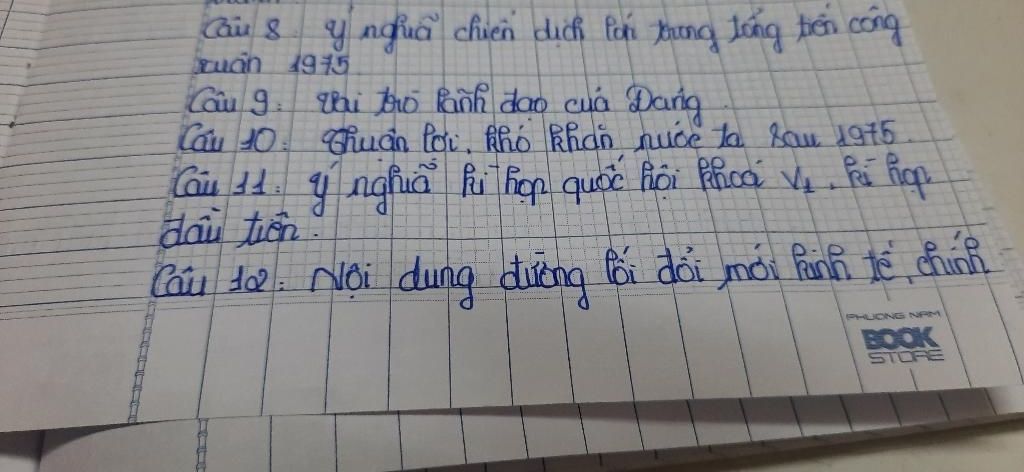 Câu 8. Ý nghĩa chiến dịch lớn trong tổng tiến công
xuân 1975
Câu 9: Vai trò lãnh đạo của Đảng.
Câu 10: Thuận lợi, khó khăn nước ta sau 1975.
Câu 11: Ý nghĩa kì họp quốc hội khoá VI, kì họp
đầu tiên.
Câu 12: Nội dung đường lối đổi mới kinh tế, chính
PHUONG NAM
BOOK
STORE